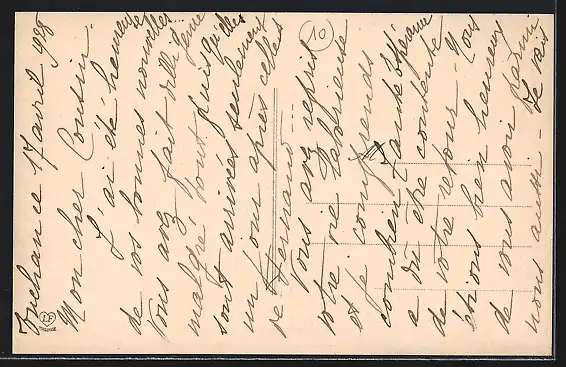 Trehance 17 avril 1928
Mon cher Cousin.
J'ai été heureuse
de vos bonnes nouvelles...
Vous avez fait dilligence
malgré tout puisqu'elles
sont arrivées seulement
un jour après celles
de Bertrand...
Vous avez repris
votre vie
et je comprends
combien tante
a dû être contente
de votre retour - Nous
étions bien heureux
de vous avoir parmi
nous aussi - Je vais
10
LF